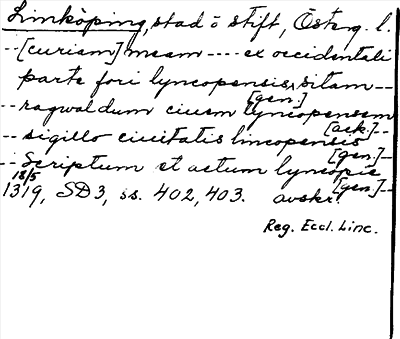 Linköping, stad o stift, Österg. l.
-- [curiam] meam ---- ex occidentali
parte fori lyncopensis [gen.] sitam --
-- ragwaldum ciuem lyncopensem [ack.] --
-- sigillo ciuitatis lincopensis [gen.] --
-- Scriptum et actum lyncopie [gen.] --
18/5 1319, SD3, ss. 402, 403. avskr.
Reg. Eccl. Linc.